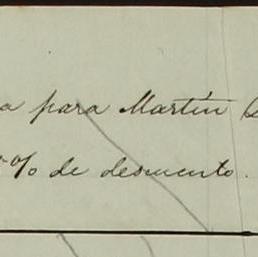 a para Martín
% de descuento.